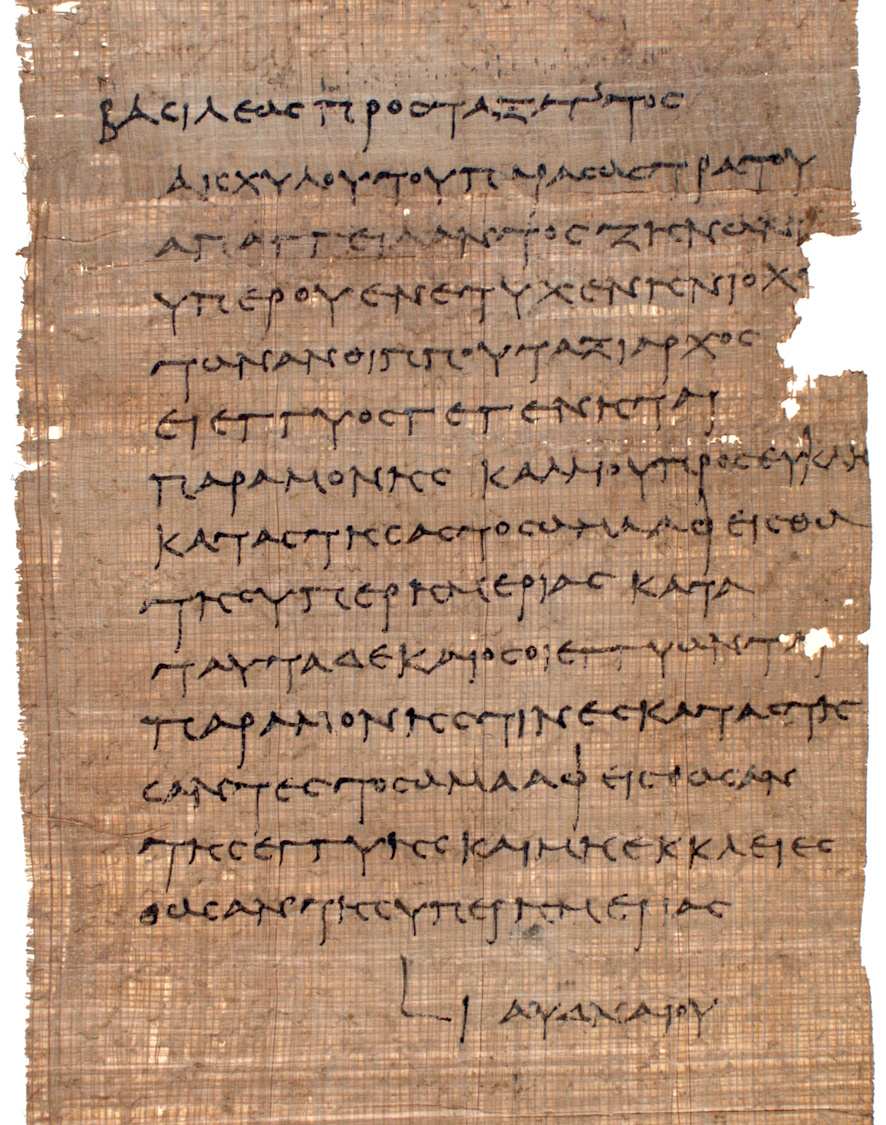 βασιλεως προσταξαντος
αισχυλου του παρα σωστρατου
απαγγειλαντος ζηνωνι
υπερ ου ενετυχεν ηνιοχο
των ανθιππου ταξιαρχος
ει εγγυος γεγενηται
παραμονης και μου προσευκαιη
καταστησας το σωμα αφεισθω
της υπερημεριας κατα
ταυτα δε και οσοι εγγυωνται
παραμονης τινες καταστη
σαντες το σωμα αφεισθωσαν
της εγγυης και μη εκκλειεσ
θωσαν της υπερημεριας
L ι αυδναιου